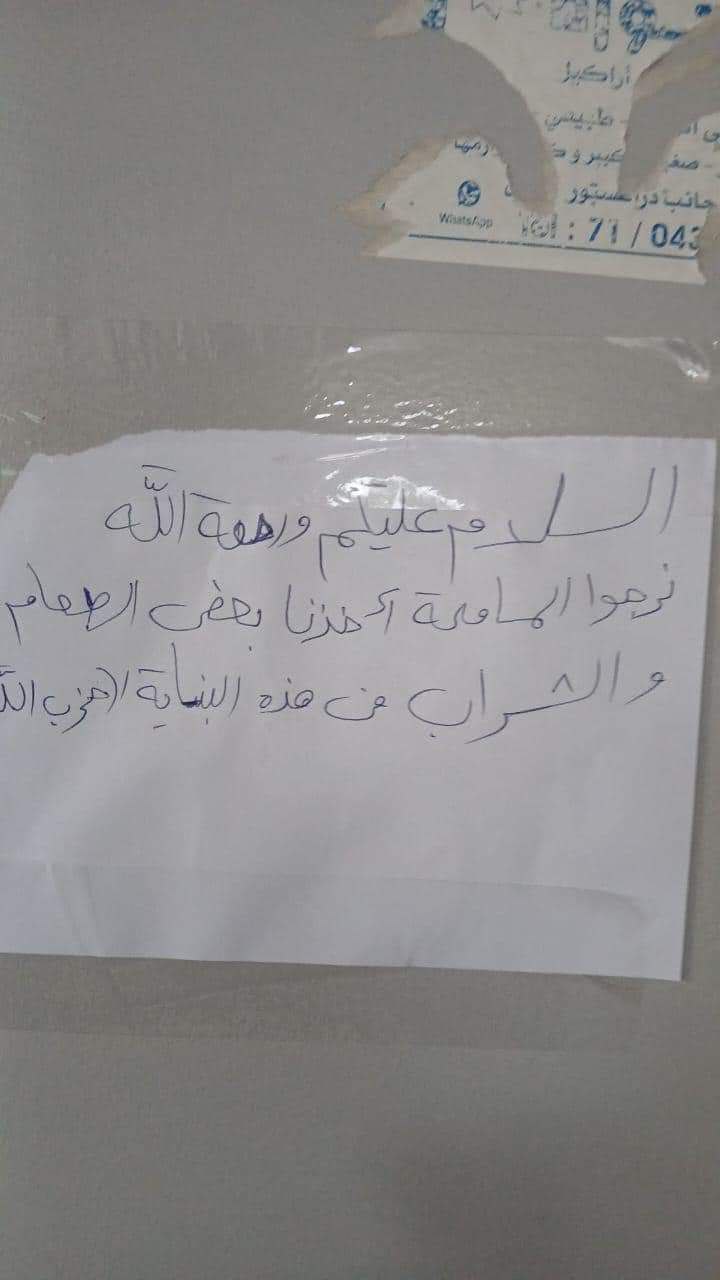 أراكيل
طبيس
كبير و
جانب
WhatsApp Tel : 71 / 043
السلام عليكم ورحمة الله
نرجوا المسامحة أخذنا بعض الطعام
والشراب من هذه البناية (حزب الله